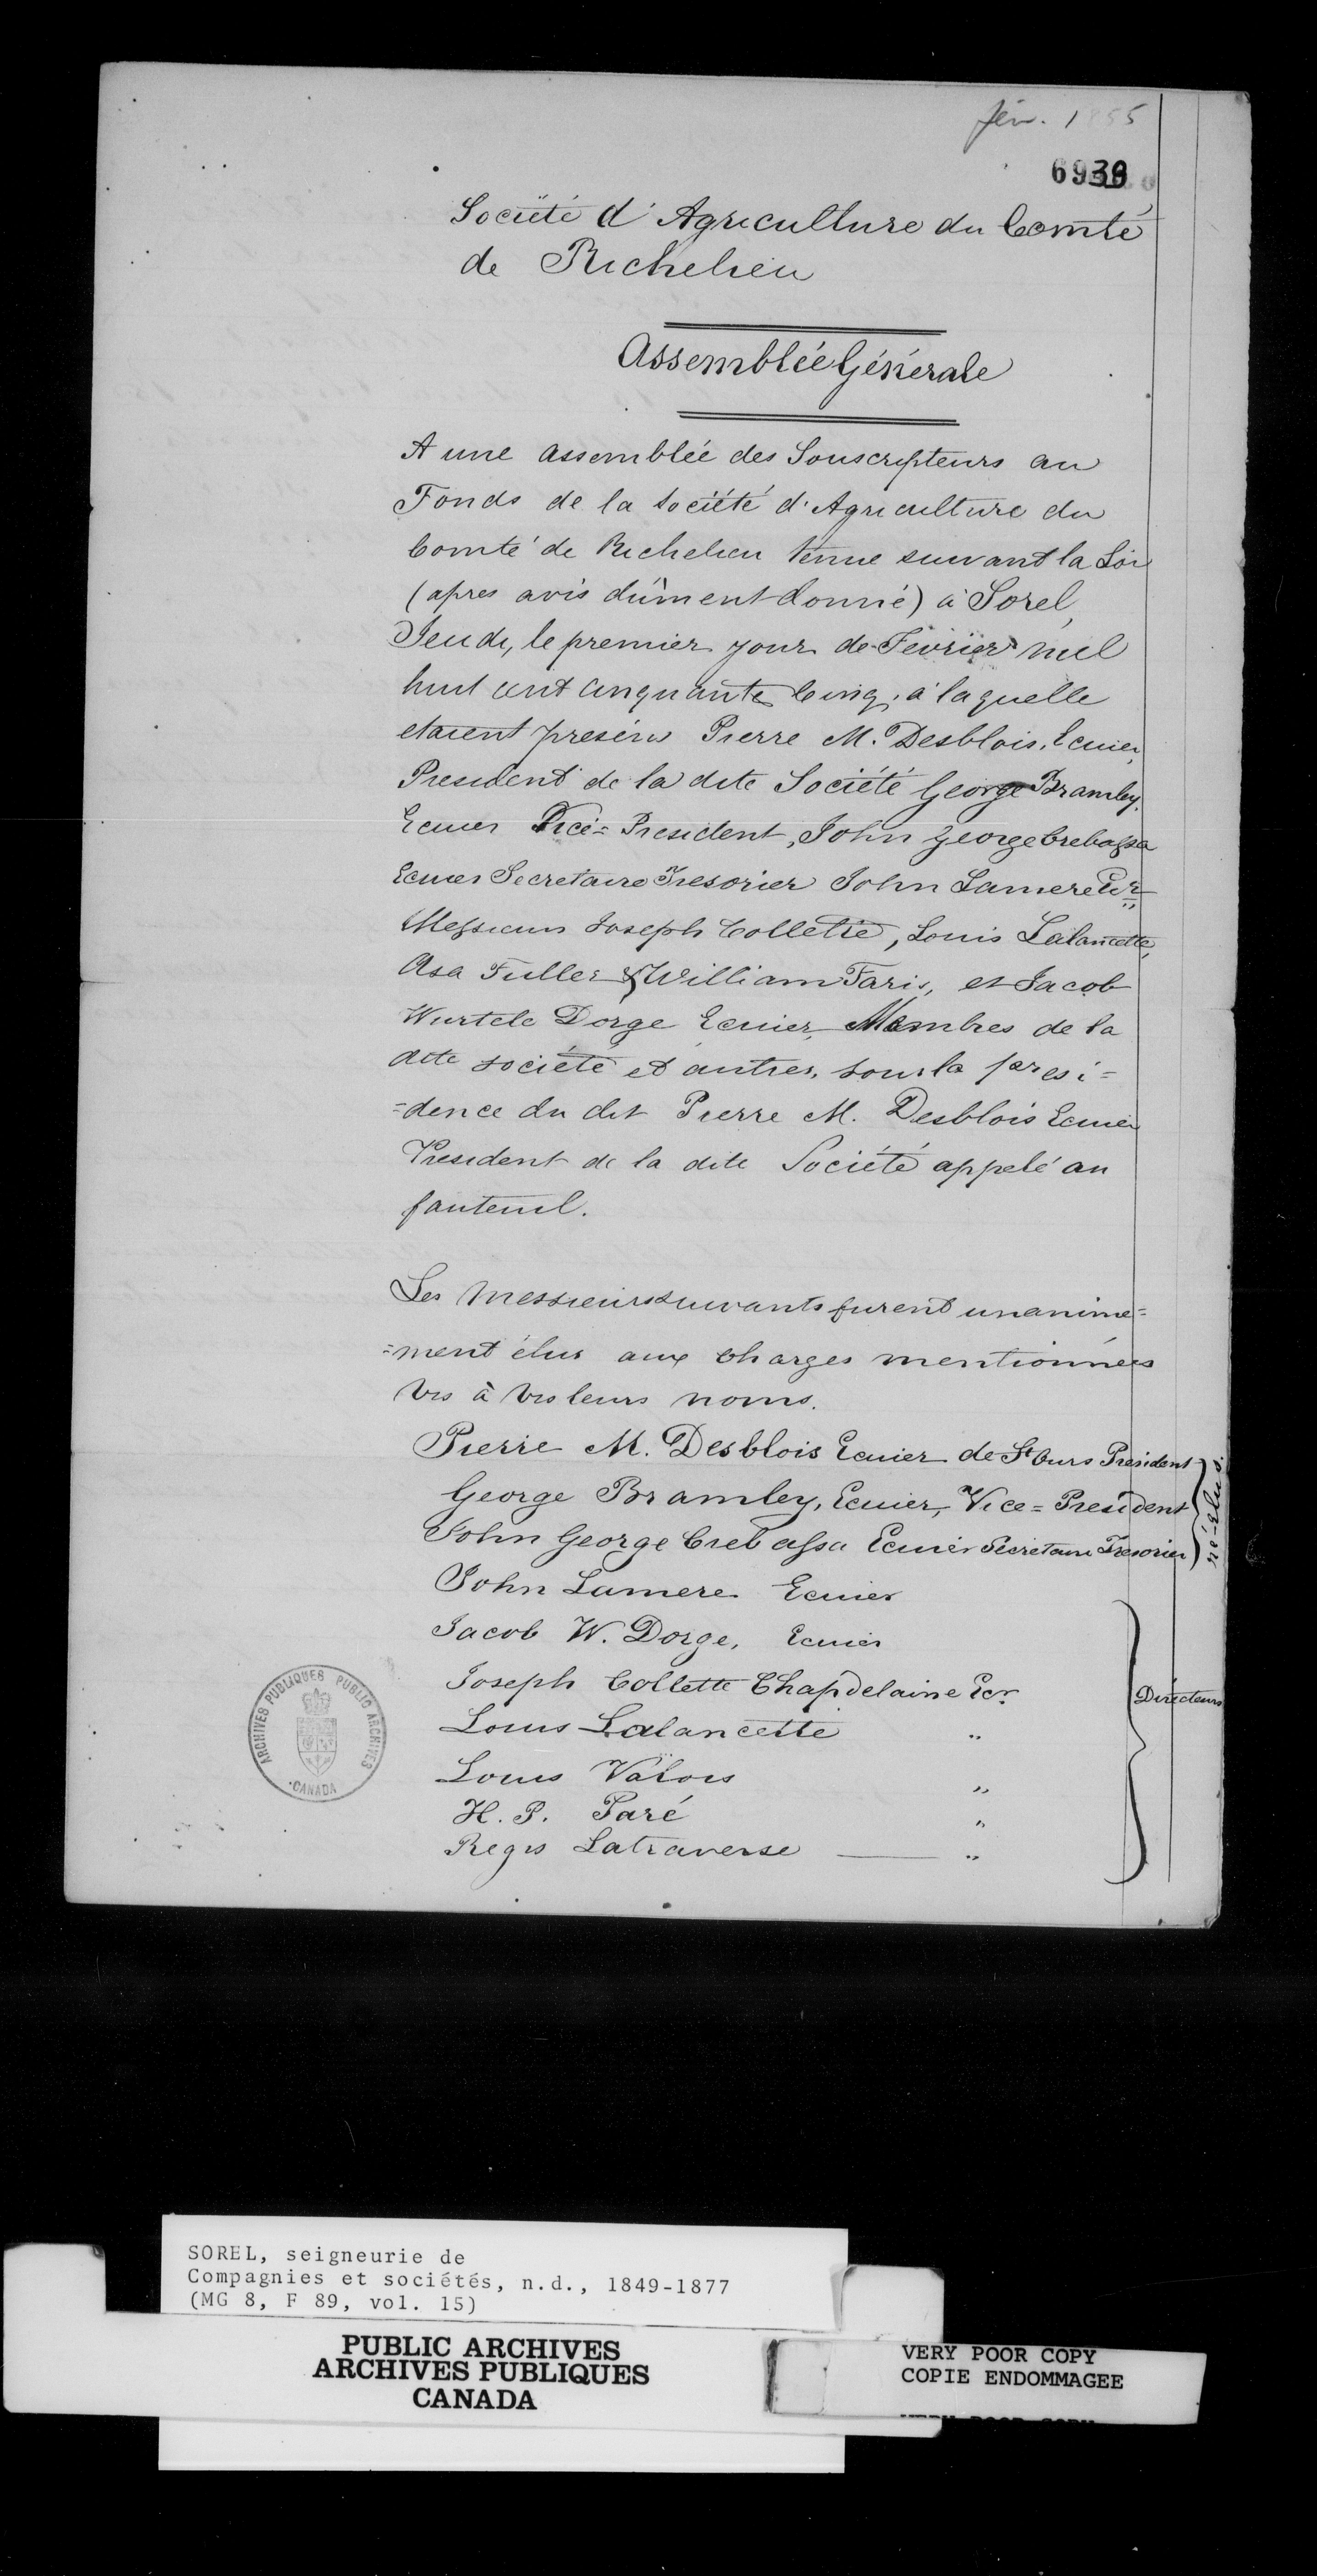 fév. 1855
6939
Société d'Agriculture du Comté
de Richelieu
Assemblée Générale
A une assemblée des Souscripteurs au
Fonds de la société d'Agriculture du
Comté de Richelieu tenue suivant la Loi
(apres avis dûment donné) à Sorel,
Jeudi, le premier jour de Fevrier mil
huit cent cinquante Cinq, à laquelle
etaient presens Pierre M. Desblois, Ecuier,
President de la dite Société George Bramley,
Ecuier Vice=President, John George Crebassa
Ecuier Secretaire Tresorier John Lamere Ecr
Messieurs Joseph Collette, Louis Lalancette,
Asa Fuller & William Faris, et Jacob
Wurtele Dorge Ecuier, Membres de la
dite société et autres, sous la presi=
=dence du dit Pierre M. Desblois Ecuier
President de la dite Société appelé au
fauteuil.
Les Messieurs suivants furent unanime=
=ment élus aux charges mentionnées
vis à vis leurs noms.
Pierre M. Desblois Ecuier de St Ours President
George Bramley, Ecuier, Vice=President
John George Crebassa Ecuier Sécretaire Tresorier
ré-Elus.
John Lamere Ecuier
Jacob W. Dorge, Ecuier
Joseph Collette Chapdelaine Ecr.
Louis Lalancette "
Louis Valois "
H. P. Paré "
Regis Latraverse — "
Directeurs
ARCHIVES PUBLIQUES PUBLIC ARCHIVES
CANADA
SOREL, seigneurie de
Compagnies et sociétés, n.d., 1849-1877
(MG 8, F 89, vol. 15)
PUBLIC ARCHIVES
ARCHIVES PUBLIQUES
CANADA
VERY POOR COPY
COPIE ENDOMMAGEE
VERY POOR COPY